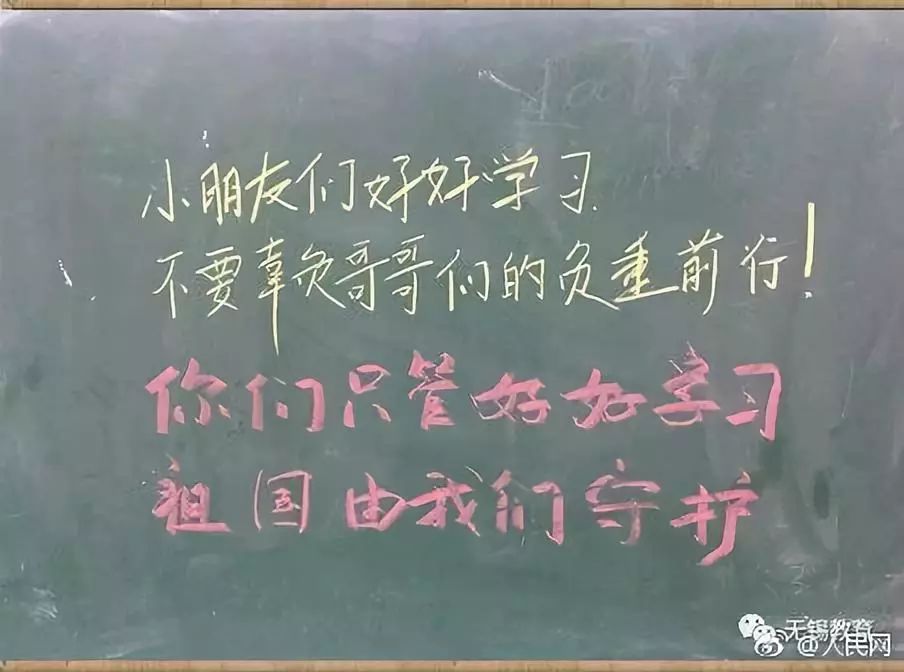 小朋友们好好学习.
不要辜负哥哥们的负重前行!
你们只管好好学习
祖国由我们守护
无锡教育
@人民网